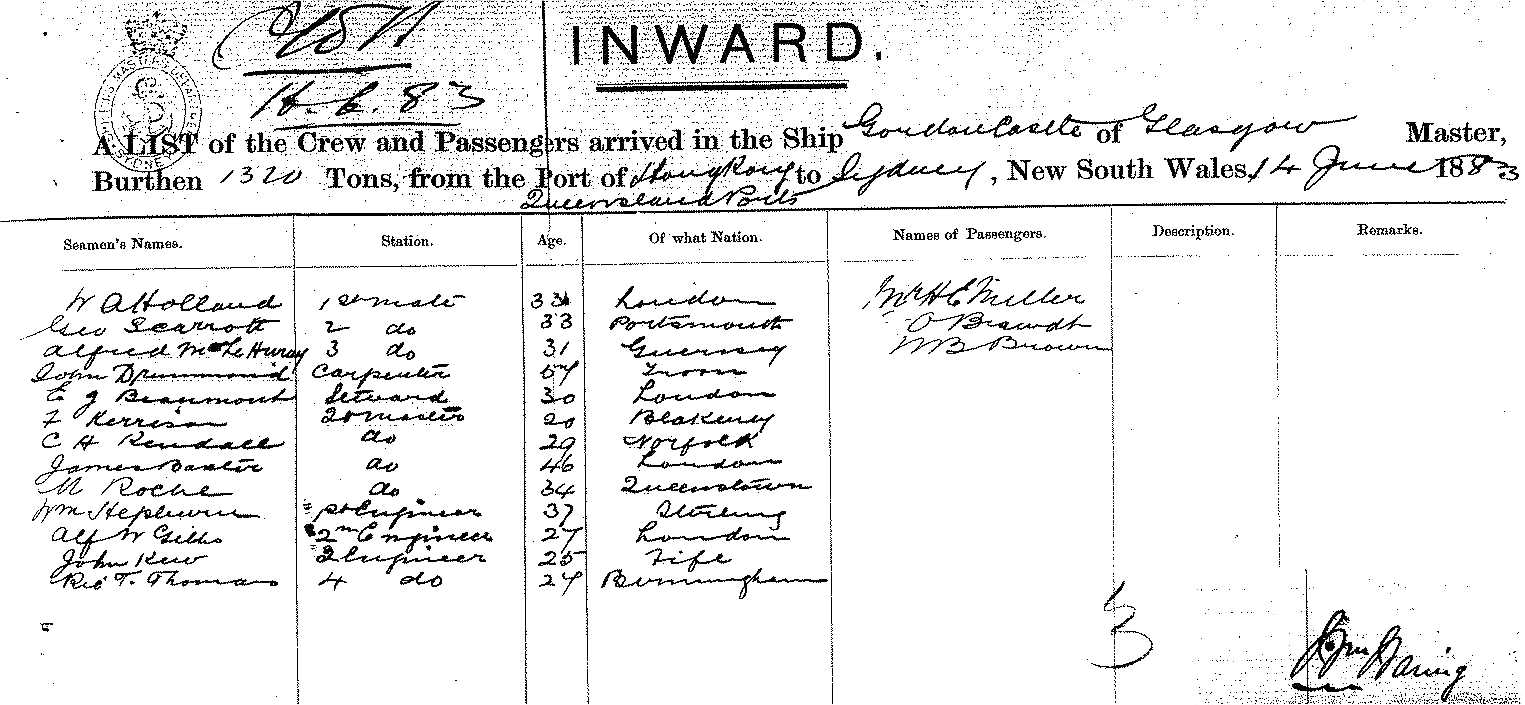 INWARD.
14.6.83
A LIST of the Crew and Passengers arrived in the Ship Gordon Castle of Glasgow Master,
Burthen 1320 Tons, from the Port of Hong Kong to Sydney, New South Wales, 14 June 1883
Queensland Ports
Seamen's Names. Station. Age. Of what Nation. Names of Passengers. Description. Remarks.
W A Holland 1st mate 33 London Mr H E Miller
Geo Scarrott 2 do 33 Portsmouth O Brandt
Alfred Le Huray 3 do 31 Guernsey W B Brown
John Drummond Carpenter 57 Troon
E J Beaumont Steward 30 London
F Kerrison 2r masters 20 Blakeney
C H Kendall do 29 Norfolk
James Baxter do 46 London
M Roche do 34 Queenstown
Wm Hepburn 1st Engineer 37 Stirling
Alf W Gibbs 2nd Engineer 27 London
John Kew 3 Engineer 25 Fife
T. Thomas 4 do 27 Birmingham
3
Waring